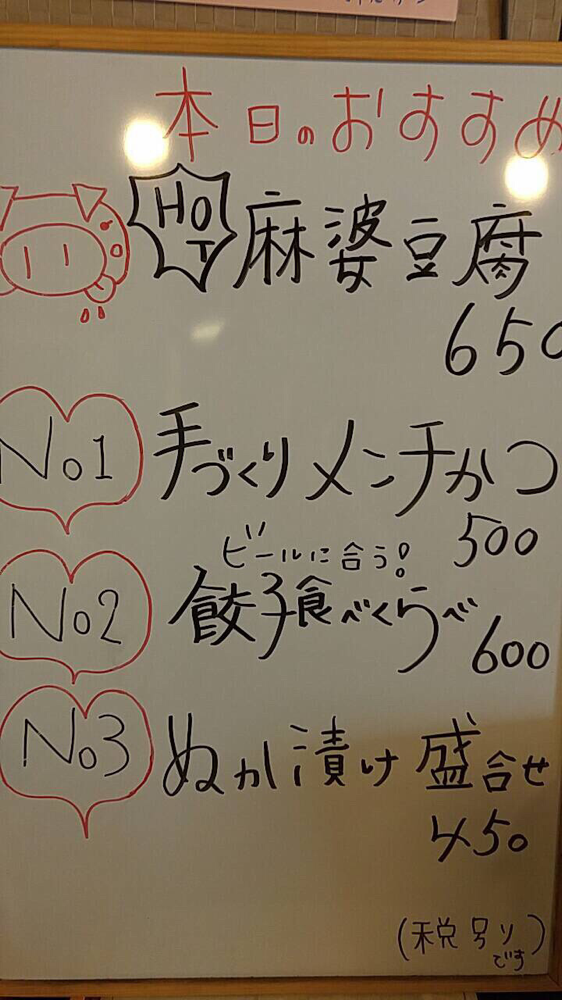 本日のおすすめ
HOT 麻婆豆腐
650
No1 手づくりメンチかつ
500
ビールに合う!
No2 餃子食べくらべ
600
No3 ぬか漬け盛合せ
450
(税別りです)